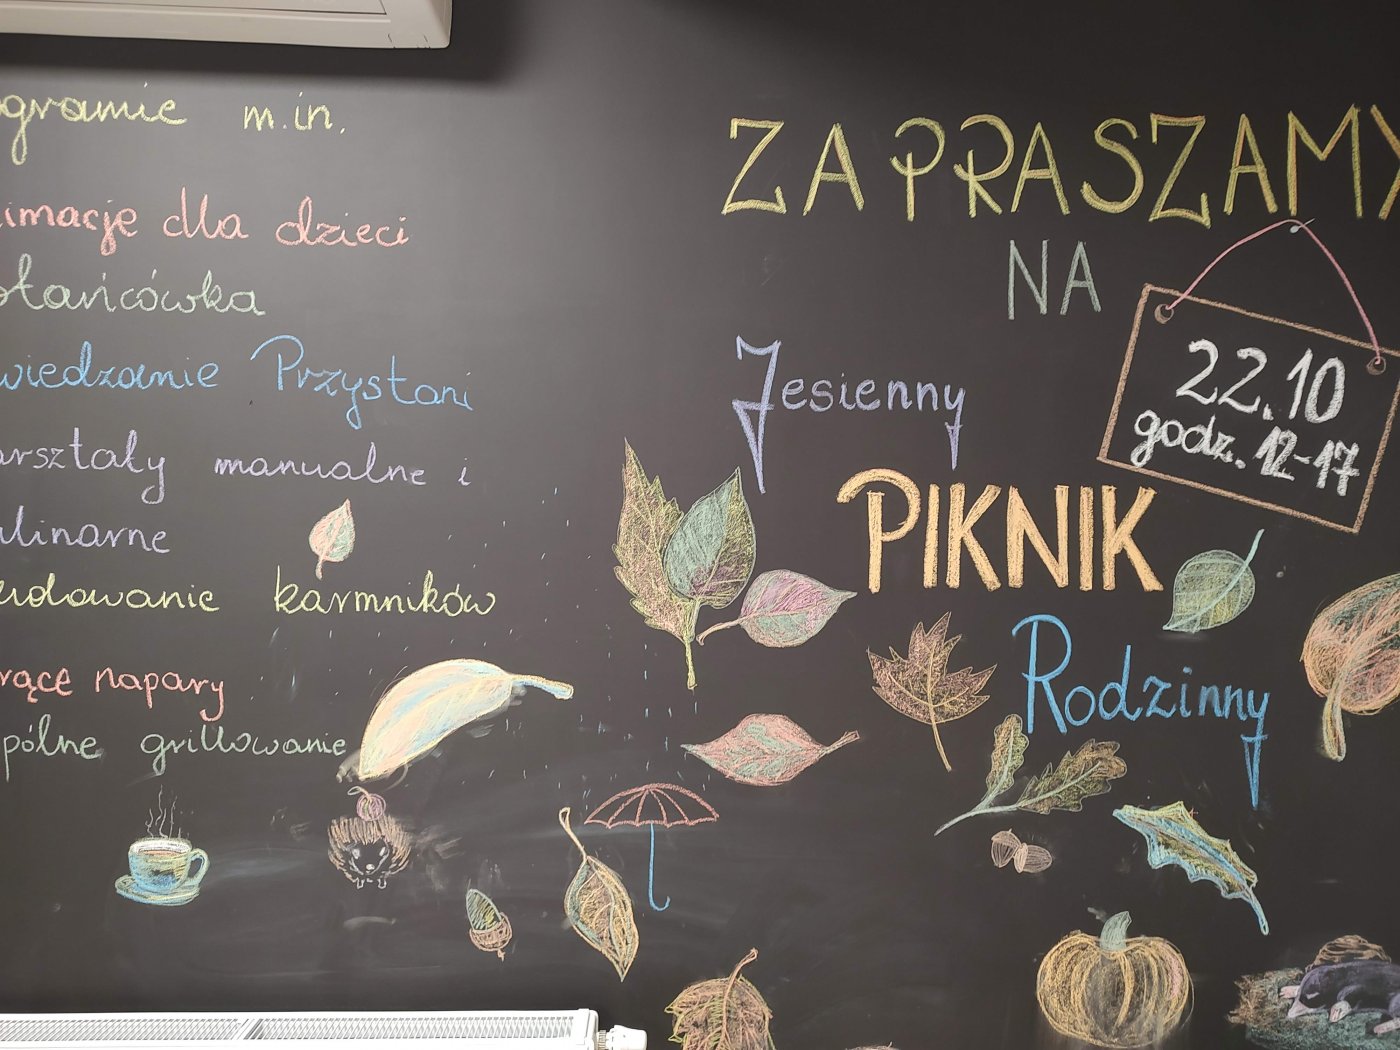 ogramie m.in.
imacje dla dzieci
otańcówka
wiedzanie Przystani
arsztaty manualne i
ulinarne
udowanie karmników
rące napary
pólne grillowanie
ZAPRASZAMY
NA
22.10
godz. 12-17
Jesienny
PIKNIK
Rodzinny